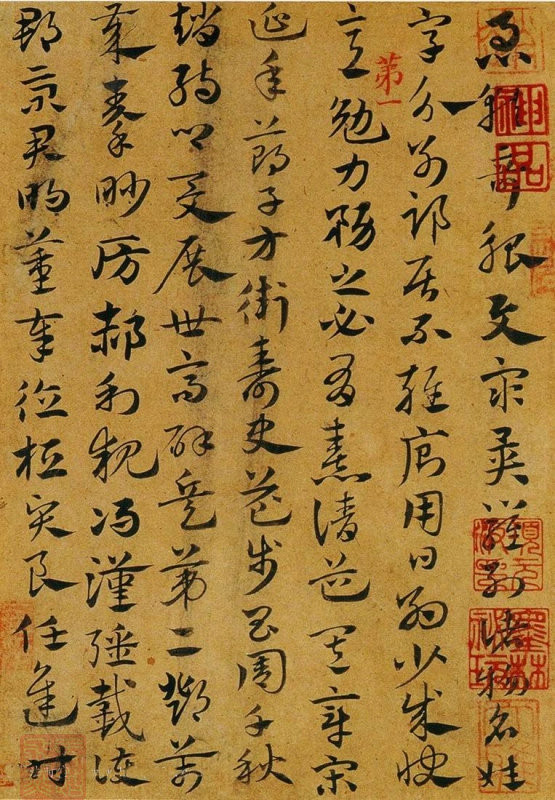 急就奇觚與衆異羅列諸物名姓
字分別部居不雜廁用日約少誠快
意勉力務之必有憙請道其章宋
第一
延年鄭子方衛益壽史步昌周千秋
趙孺卿爰展世高辟兵第二鄧萬
歲秦眇房郝利親馮漢強戴護
郡景君明董奉德桓賢良任逢時